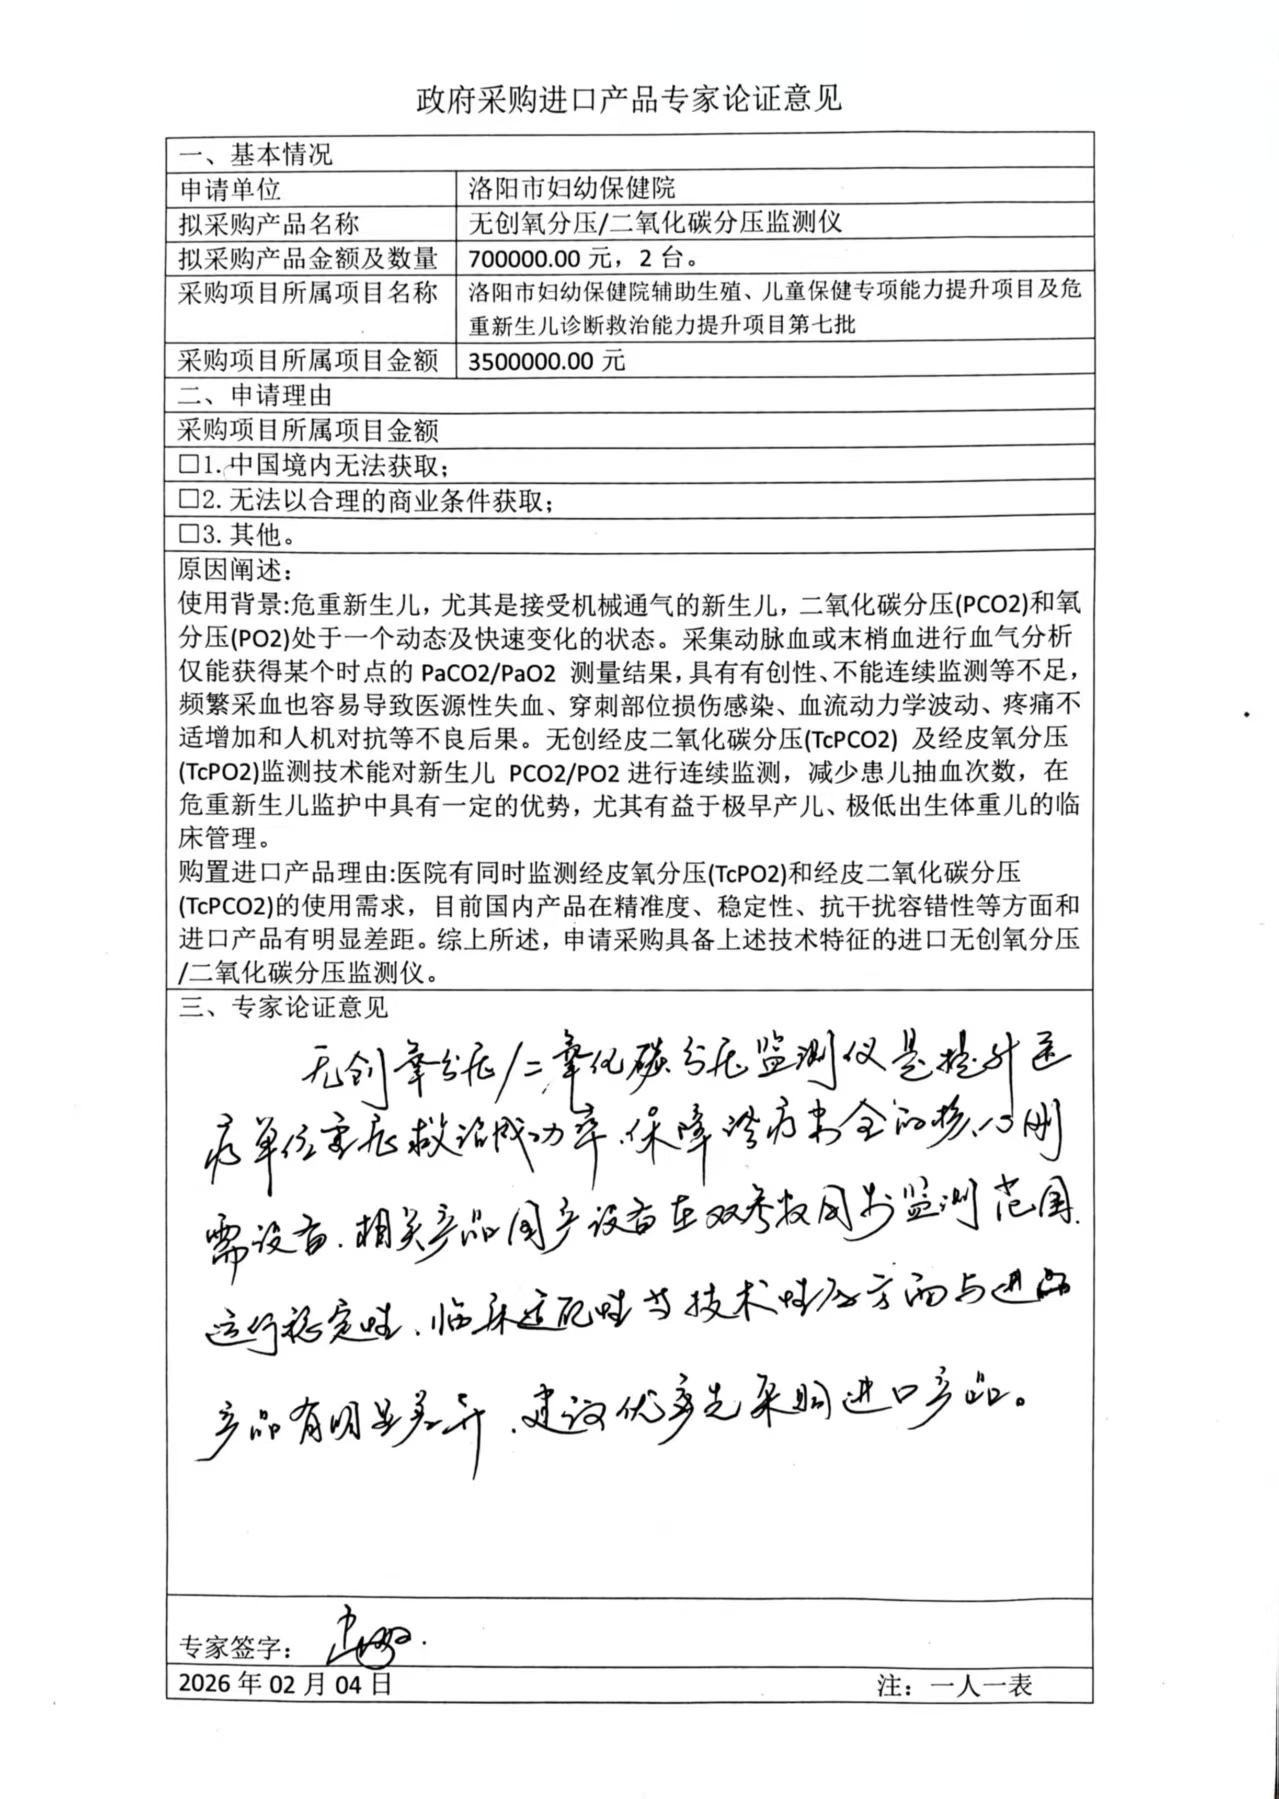 政府采购进口产品专家论证意见
一、基本情况
申请单位 洛阳市妇幼保健院
拟采购产品名称 无创氧分压/二氧化碳分压监测仪
拟采购产品金额及数量 700000.00 元，2 台。
采购项目所属项目名称 洛阳市妇幼保健院辅助生殖、儿童保健专项能力提升项目及危
重新生儿诊断救治能力提升项目第七批
采购项目所属项目金额 3500000.00 元
二、申请理由
采购项目所属项目金额
□1. 中国境内无法获取；
□2. 无法以合理的商业条件获取；
□3. 其他。
原因阐述：
使用背景:危重新生儿，尤其是接受机械通气的新生儿，二氧化碳分压(PCO2)和氧
分压(PO2)处于一个动态及快速变化的状态。采集动脉血或末梢血进行血气分析
仅能获得某个时点的 PaCO2/PaO2 测量结果，具有有创性、不能连续监测等不足，
频繁采血也容易导致医源性失血、穿刺部位损伤感染、血流动力学波动、疼痛不
适增加和人机对抗等不良后果。无创经皮二氧化碳分压(TcPCO2) 及经皮氧分压
(TcPO2)监测技术能对新生儿 PCO2/PO2 进行连续监测，减少患儿抽血次数，在
危重新生儿监护中具有一定的优势，尤其有益于极早产儿、极低出生体重儿的临
床管理。
购置进口产品理由:医院有同时监测经皮氧分压(TcPO2)和经皮二氧化碳分压
(TcPCO2)的使用需求，目前国内产品在精准度、稳定性、抗干扰容错性等方面和
进口产品有明显差距。综上所述，申请采购具备上述技术特征的进口无创氧分压
/二氧化碳分压监测仪。
三、专家论证意见
无创氧分压/二氧化碳分压监测仪是提升医
疗单位重症救治成功率、保障诊疗安全的核心刚
需设备，相关产品国产设备在双参数同步监测范围、
运行稳定性、临床适配性等技术性及方面与进口
产品有明显差异，建议优先采购进口产品。
专家签字：
2026 年 02 月 04 日 注：一人一表